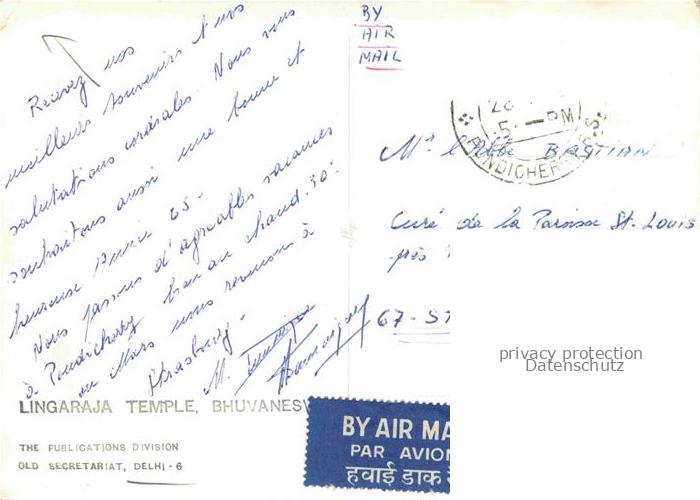 Recevez nos
meilleurs souvenirs et nos
salutations cordiales. Nous vous
souhaitons aussi une bonne et
heureuse Année 65-
Nous passons d'agréables vacances
à Pondichéry bien au chaud. 30°
au Mars nous revenons à
Strasbourg.
M.
LINGARAJA TEMPLE, BHUVANESW
THE PUBLICATIONS DIVISION
OLD SECRETARIAT, DELHI-6
BY
AIR
MAIL
28
5 - PM
PONDICHERRY
Mr l'Abbé BASTIAN
Curé de la Paroisse St. Louis
près
67-ST
privacy protection
Datenschutz
BY AIR MA
PAR AVION
हवाई डाक